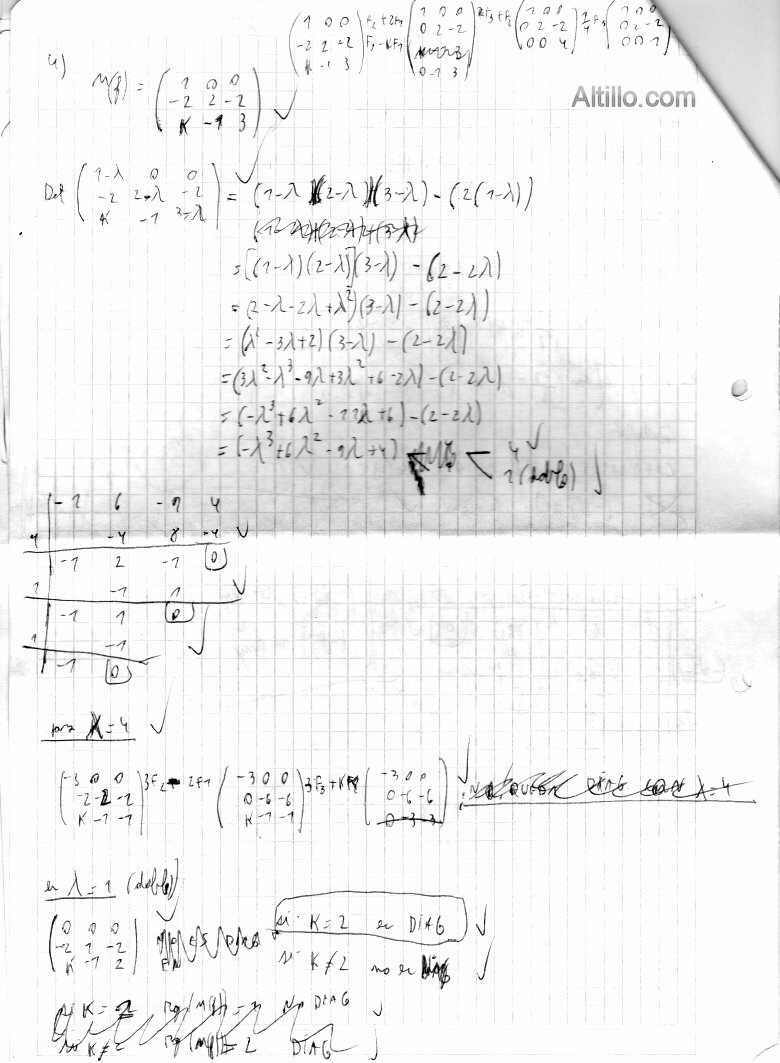 (1 0 0 / -2 2 -2 / K -1 3) F2+2F1 F3-KF1 (1 0 0 / 0 2 -2 / 0 -1 3) 2F3+F2 (1 0 0 / 0 2 -2 / 0 0 4) 1/4 F3 (1 0 0 / 0 2 -2 / 0 0 1)
4) M(f) = (1 0 0 / -2 2 -2 / K -1 3) ✓
Altillo.com
Det (1-λ 0 0 / -2 2-λ -2 / K -1 3-λ) = (1-λ)(2-λ)(3-λ) - (2(1-λ))
= [(1-λ)(2-λ)](3-λ) - (2-2λ)
= (2-λ-2λ+λ²)(3-λ) - (2-2λ)
= (λ²-3λ+2)(3-λ) - (2-2λ)
= (3λ²-λ³-9λ+3λ²+6-2λ) - (2-2λ)
= (-λ³+6λ²-11λ+6) - (2-2λ)
= (-λ³+6λ²-9λ+4) < 4 ✓
1 (doble) ✓
-1 6 -9 4
4 -4 8 -4 ✓
-1 2 -1 0
1 -1 1 ✓
-1 1 0
1 -1 ✓
-1 0
para λ=4 ✓
(-3 0 0 / -2 -2 -2 / K -1 -1) 3F2-2F1 (-3 0 0 / 0 -6 -6 / K -1 -1) 3F3+KF1 (-3 0 0 / 0 -6 -6 / 0 -3 -3) ✓
λ=4
en λ=1 (doble)
(0 0 0 / -2 1 -2 / K -1 2) ✓ si K=2 es DIAG ✓
si K≠2 no es DIAG ✓
si K=2 Rg(M(f))=1 NO DIAG ✓
si K≠2 Rg(M(f))=2 DIAG ✓